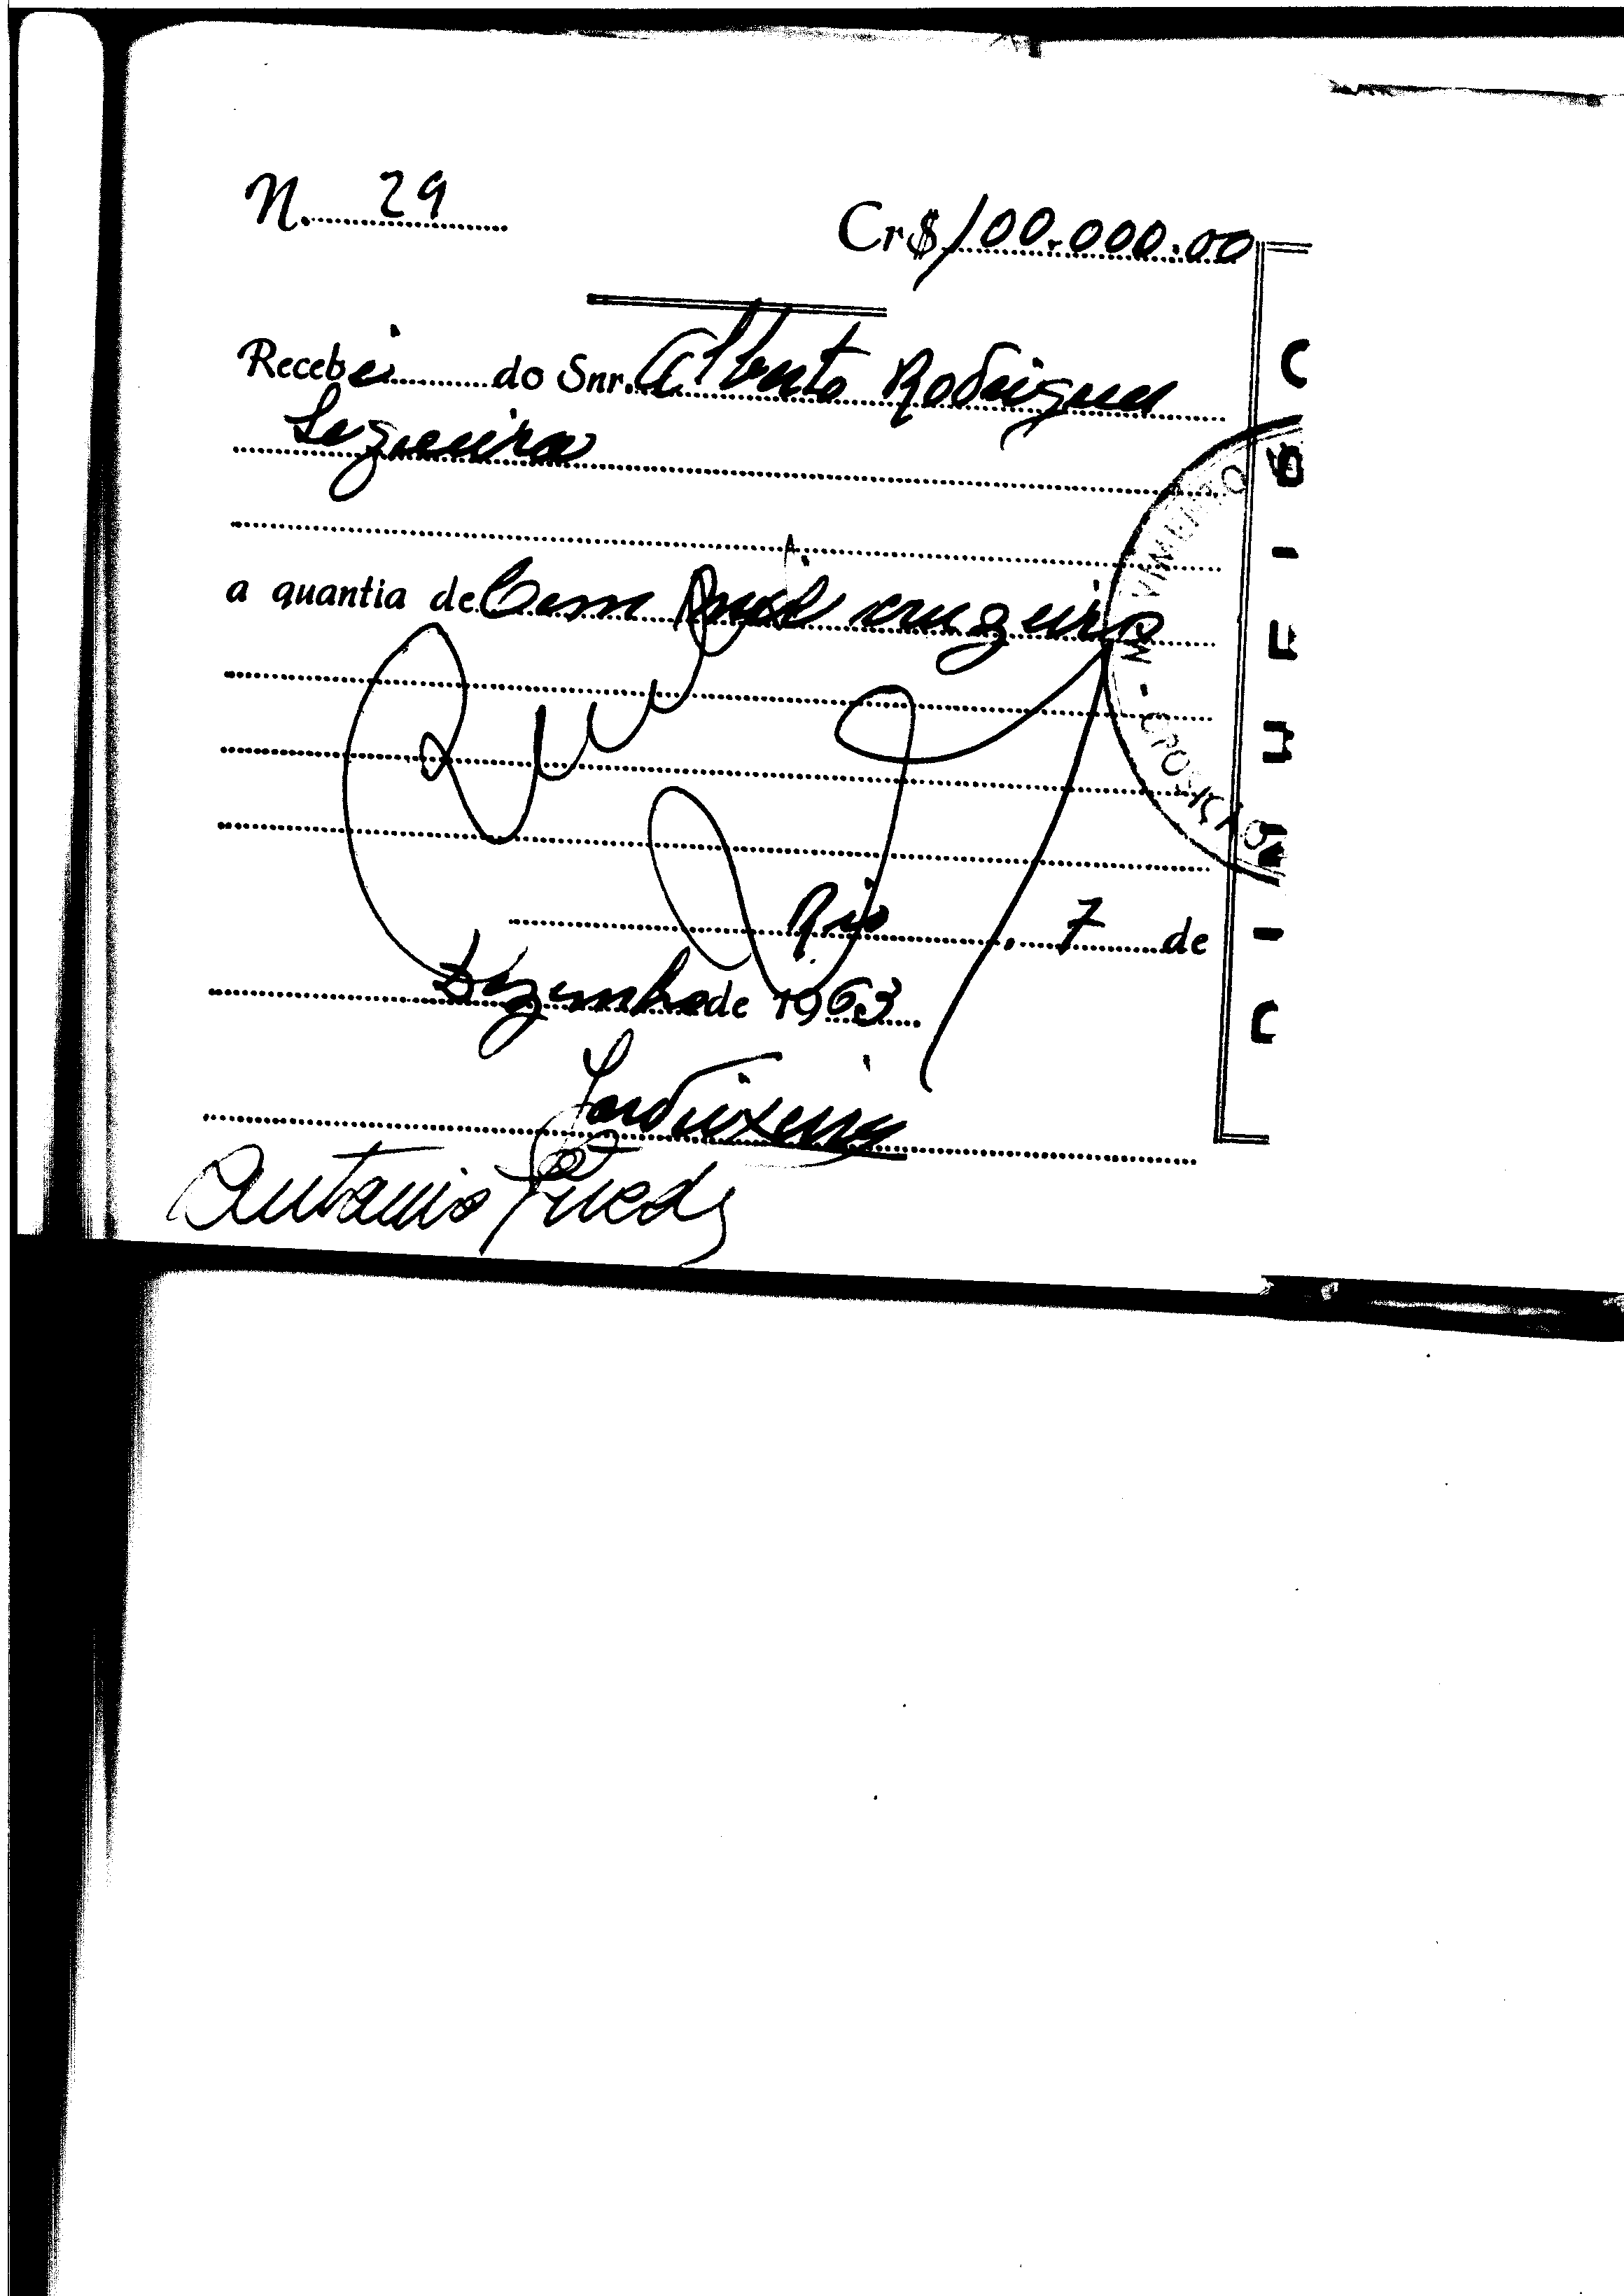 N. 29
Cr$ 100.000.00
Recebi do Snr. Alberto Rodrigues
Sequeira
a quantia de Cem mil cruzeiros
Rio, 7 de
Dezembro de 1963
Antonio Guedes